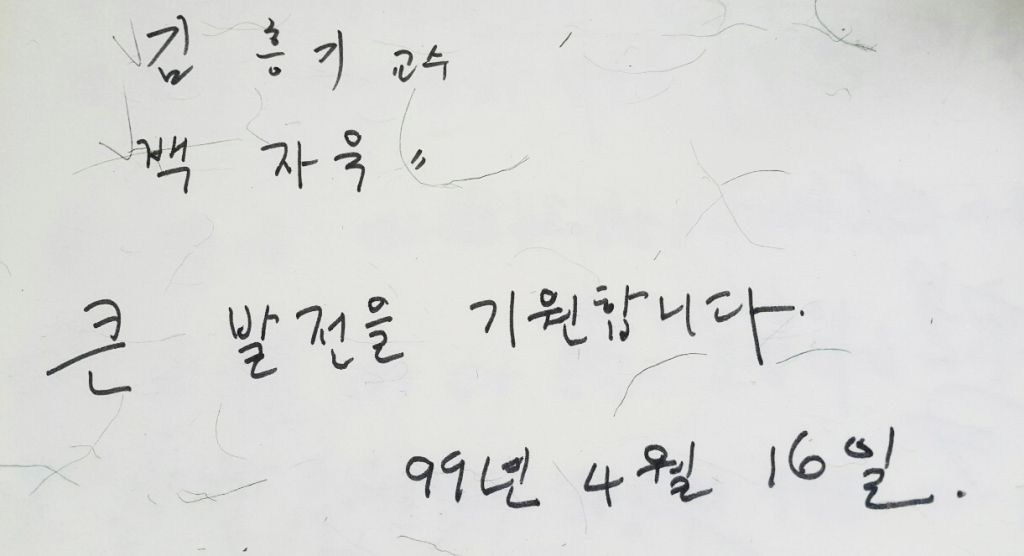 김 흥기 교수
백 자욱 〃
큰 발전을 기원합니다.
99년 4월 16일.